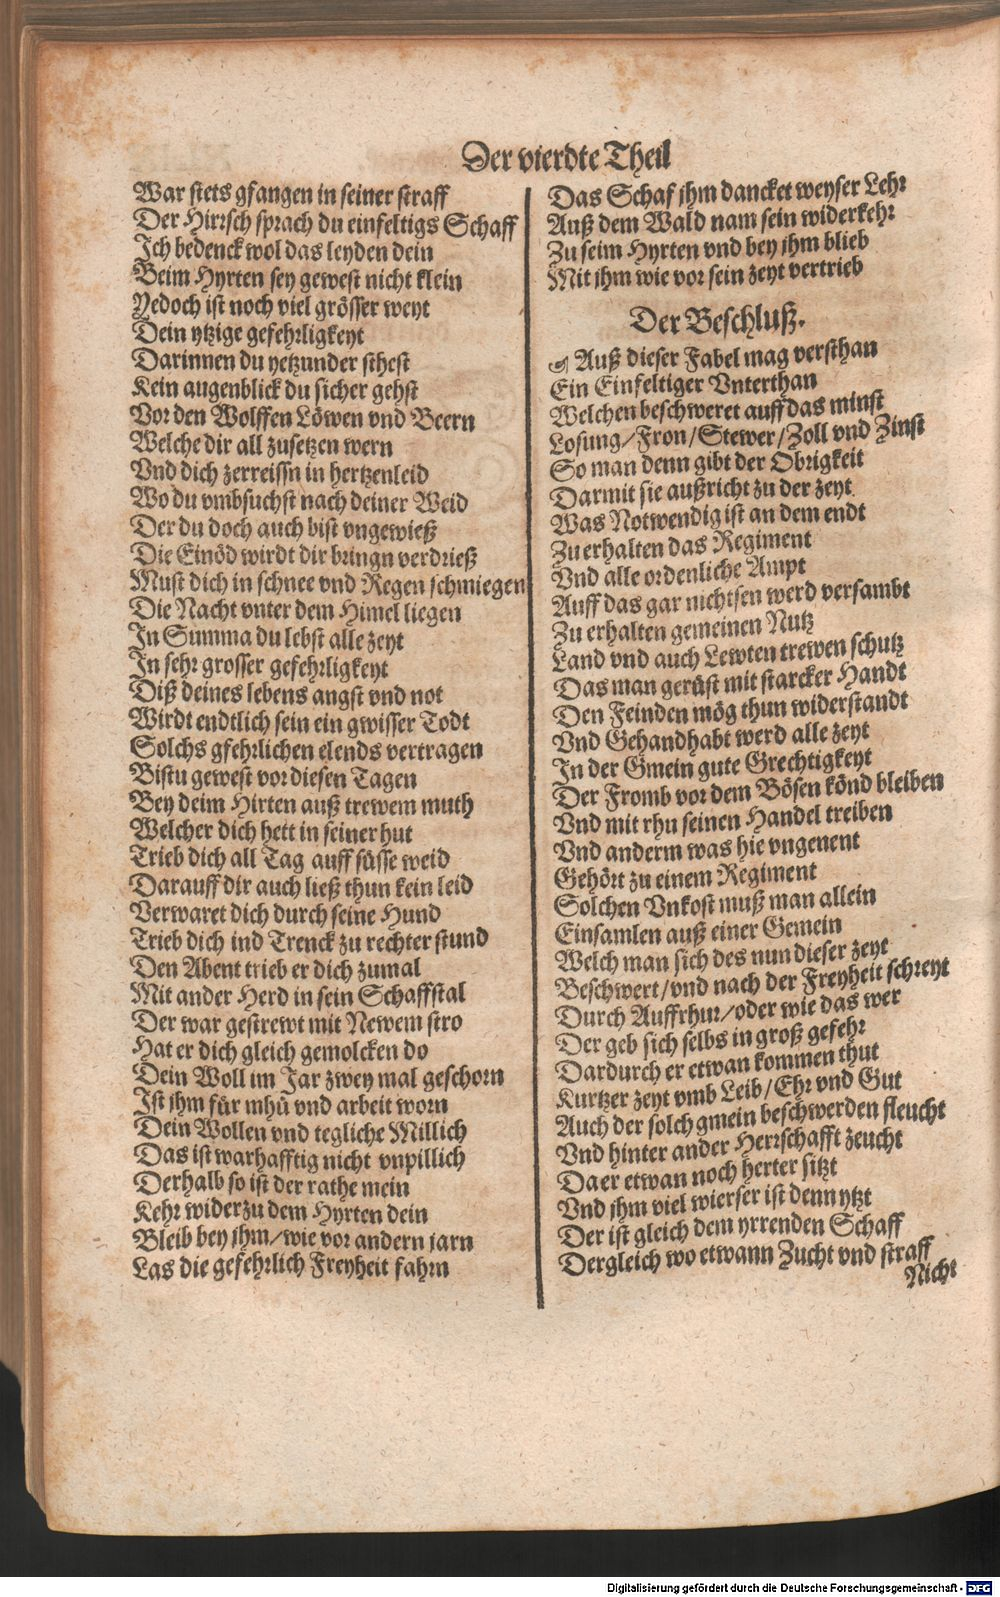 Der vierdte Theil
War stets gfangen in seiner straff
Der Hirrsch sprach du einfeltigs Schaff
Ich bedenck wol das leyden dein
Beim Hyrten sey gewest nicht klein
Yedoch ist noch viel grösser weyt
Dein ytzige gefehrligkeyt
Darinnen du yetzunder sthest
Kein augenblick du sicher gehst
Vor den Wolffen Löwen vnd Beern
Welche dir all zusetzen wern
Vnd dich zerreissn in hertzenleid
Wo du vmbsuchst nach deiner Weid
Der du doch auch bist vngewieß
Die Einöd wirdt dir bringn verdrieß
Must dich in schnee vnd Regen schmiegen
Die Nacht vnter dem Himel liegen
In Summa du lebst alle zeyt
In sehr grosser gefehrligkeyt
Diß deines lebens angst vnd not
Wirdt endtlich sein ein gwisser Todt
Solchs gfehrlichen elends vertragen
Bistu gewest vor diesen Tagen
Bey deim Hirten auß trewem muth
Welcher dich hett in seiner hut
Trieb dich all Tag auff süsse weid
Darauff dir auch ließ thun kein leid
Verwaret dich durch seine Hund
Trieb dich ind Trenck zu rechter stund
Den Abent trieb er dich zumal
Mit ander Herd in sein Schaffstal
Der war gestrewt mit Newem stro
Hat er dich gleich gemolcken do
Dein Woll im Jar zwey mal geschorn
Ist ihm für mhü vnd arbeit worn
Dein Wollen vnd tegliche Millich
Das ist warhafftig nicht vnpillich
Derhalb so ist der rathe mein
Kehr wider zu dem Hyrten dein
Bleib bey ihm/wie vor andern jarn
Las die gefehrlich Freyheit fahrn
Das Schaf ihm dancket weyser Lehr
Auß dem Wald nam sein widerkehr
Zu seim Hyrten vnd bey ihm blieb
Mit ihm wie vor sein zeyt vertrieb
Der Beschluß.
☞ Auß dieser Fabel mag versthan
Ein Einfeltiger Vnterthan
Welchen beschweret auff das minst
Losung/Fron/Stewer/Zoll vnd Zinst
So man denn gibt der Obrigkeit
Darmit sie außricht zu der zeyt
Was Notwendig ist an dem endt
Zu erhalten das Regiment
Vnd alle ordenliche Ampt
Auff das gar nichtsen werd versambt
Zu erhalten gemeinen Nutz
Land vnd auch Lewten trewen schutz
Das man gerüst mit starcker Handt
Den Feinden mög thun widerstandt
Vnd Gehandhabt werd alle zeyt
In der Gmein gute Grechtigkeyt
Der Fromb vor dem Bösen könd bleiben
Vnd mit rhu seinen Handel treiben
Vnd anderm was hie vngenent
Gehört zu einem Regiment
Solchen Vnkost muß man allein
Einsamlen auß einer Gemein
Welch man sich des nun dieser zeyt
Beschwert/vnd nach der Freyheit schreyt
Durch Auffrhur/oder wie das wer
Der geb sich selbs in groß gefehr
Dardurch er etwan kommen thut
Kurtzer zeyt vmb Leib/Ehr vnd Gut
Auch der solch gmein beschwerden fleucht
Vnd hinter ander Herrschafft zeucht
Da er etwan noch herter sitzt
Vnd ihm viel wierser ist denn ytzt
Der ist gleich dem yrrenden Schaff
Dergleich wo etwann Zucht vnd straff
Nicht
Digitalisierung gefördert durch die Deutsche Forschungsgemeinschaft - DFG